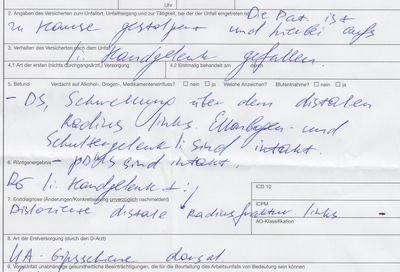 Uhr
2. Angaben des Versicherten zum Unfallort, Unfallhergang und zur Tätigkeit, bei der der Unfall eingetreten ist
Die Pat. ist
zu Hause gestolpert und hierbei aufs
3. Verhalten des Versicherten nach dem Unfall
li. Handgelenk gefallen.
4.1 Art der ersten (nicht durchgangsärztl.) Versorgung 4.2 Erstmalig behandelt am durch
5. Befund Verdacht auf Alkohol-, Drogen-, Medikamenteneinfluss? nein ja Welche Anzeichen? Blutentnahme? nein ja
- DS, Schwellung über dem distalen
Radius links. Ellenbogen- und
Schultergelenk li. sind intakt.
6. Röntgenergebnis
- pDMS sind intakt.
Rö li. Handgelenk
ICD 10
7. Erstdiagnose (Änderungen/Konkretisierung unverzüglich nachmelden)
Dislozierte distale Radiusfraktur links
ICPM
AO-Klassifikation
8. Art der Erstversorgung (durch den D-Arzt)
UA-Gipsschiene dorsal
9. Vom Unfall unabhängige gesundheitliche Beeinträchtigungen, die für die Beurteilung des Arbeitsunfalls von Bedeutung sein können